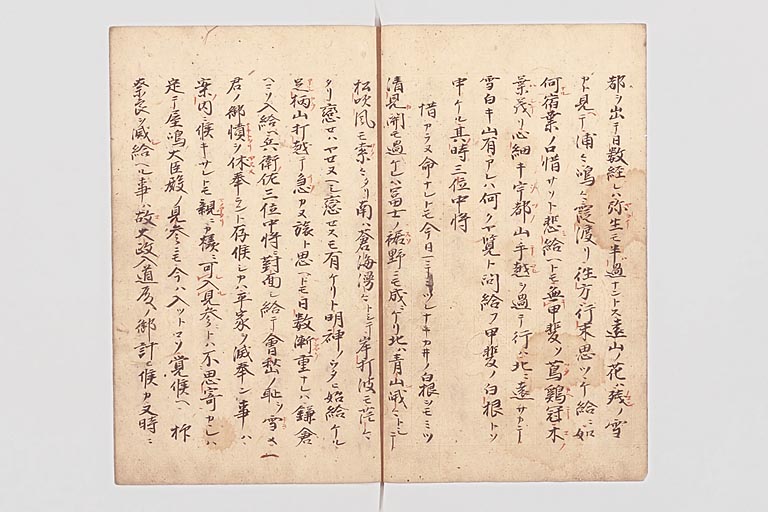 都ヲ出テ日数経レハ弥生モ半過ナントス遠山ノ花ハ残ノ雪
カト見ヘテ浦々嶋々霞渡リ往方行末思ツヽケ給ニ如
何宿業ノ口惜サソト悲給ヘトモ無甲斐ソ蔦鶏冠木
葉茂リ心細キ宇都山手越ヲ過テ行ハ北ニ遠サカテ
雪白キ山有アレハ何クヤ覧ト問給フ甲斐ノ白根トソ
申ケル其時三位中将
惜カラヌ命ナレトモ今日マテニツレナキカヰノ白根ヲモミツ
清見関モ過ケレハ富士ノ裾野ニモ成ニケリ北ハ青山峨々トシテ
松吹風モ索々タリ南ハ蒼海漫々トシテ岸打波モ茫々
タリ恋セハヤセヌヘシ恋セスモ有ケリト明神ノウタヒ始給ケル
足柄山打越テ急カヌ旅ト思ヘトモ日数漸重ナレハ鎌倉
ヘソ入給ヘ兵衛佐三位中将ニ対面シ給テ会稽ノ恥ヲ雪メ
君ノ御憤ヲ休奉ラント存候シカハ平家ヲ滅奉ン事ハ
案内ニ候キサレトモ親ニカ様ニ可入見参トハ不思寄カシハ
定テ屋嶋大臣殿ノ見参ニモ今ハ入ツトコソ覚候ヘ抑
奈良ヲ滅給ヘル事ハ故大政入道殿ノ御計ヒ候カ又時ニ